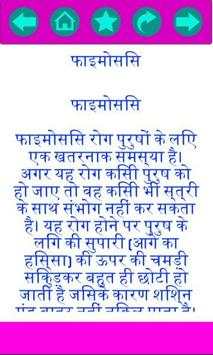 फाइमोससि
फाइमोससि
फाइमोससि रोग पुरुषों के लएि
एक खतरनाक समस्या है।
अगर यह रोग कसिी पुरुष को
हो जाए तो वह कसिी भी स्त्री
के साथ संभोग नहीं कर सकता
है। यह रोग होने पर पुरुष के
लगि की सुपारी (आगे का
हसि्सा) की ऊपर की चमड़ी
सकिुड़कर बहुत ही छोटी हो
जाती है जसिके कारण शशि्न